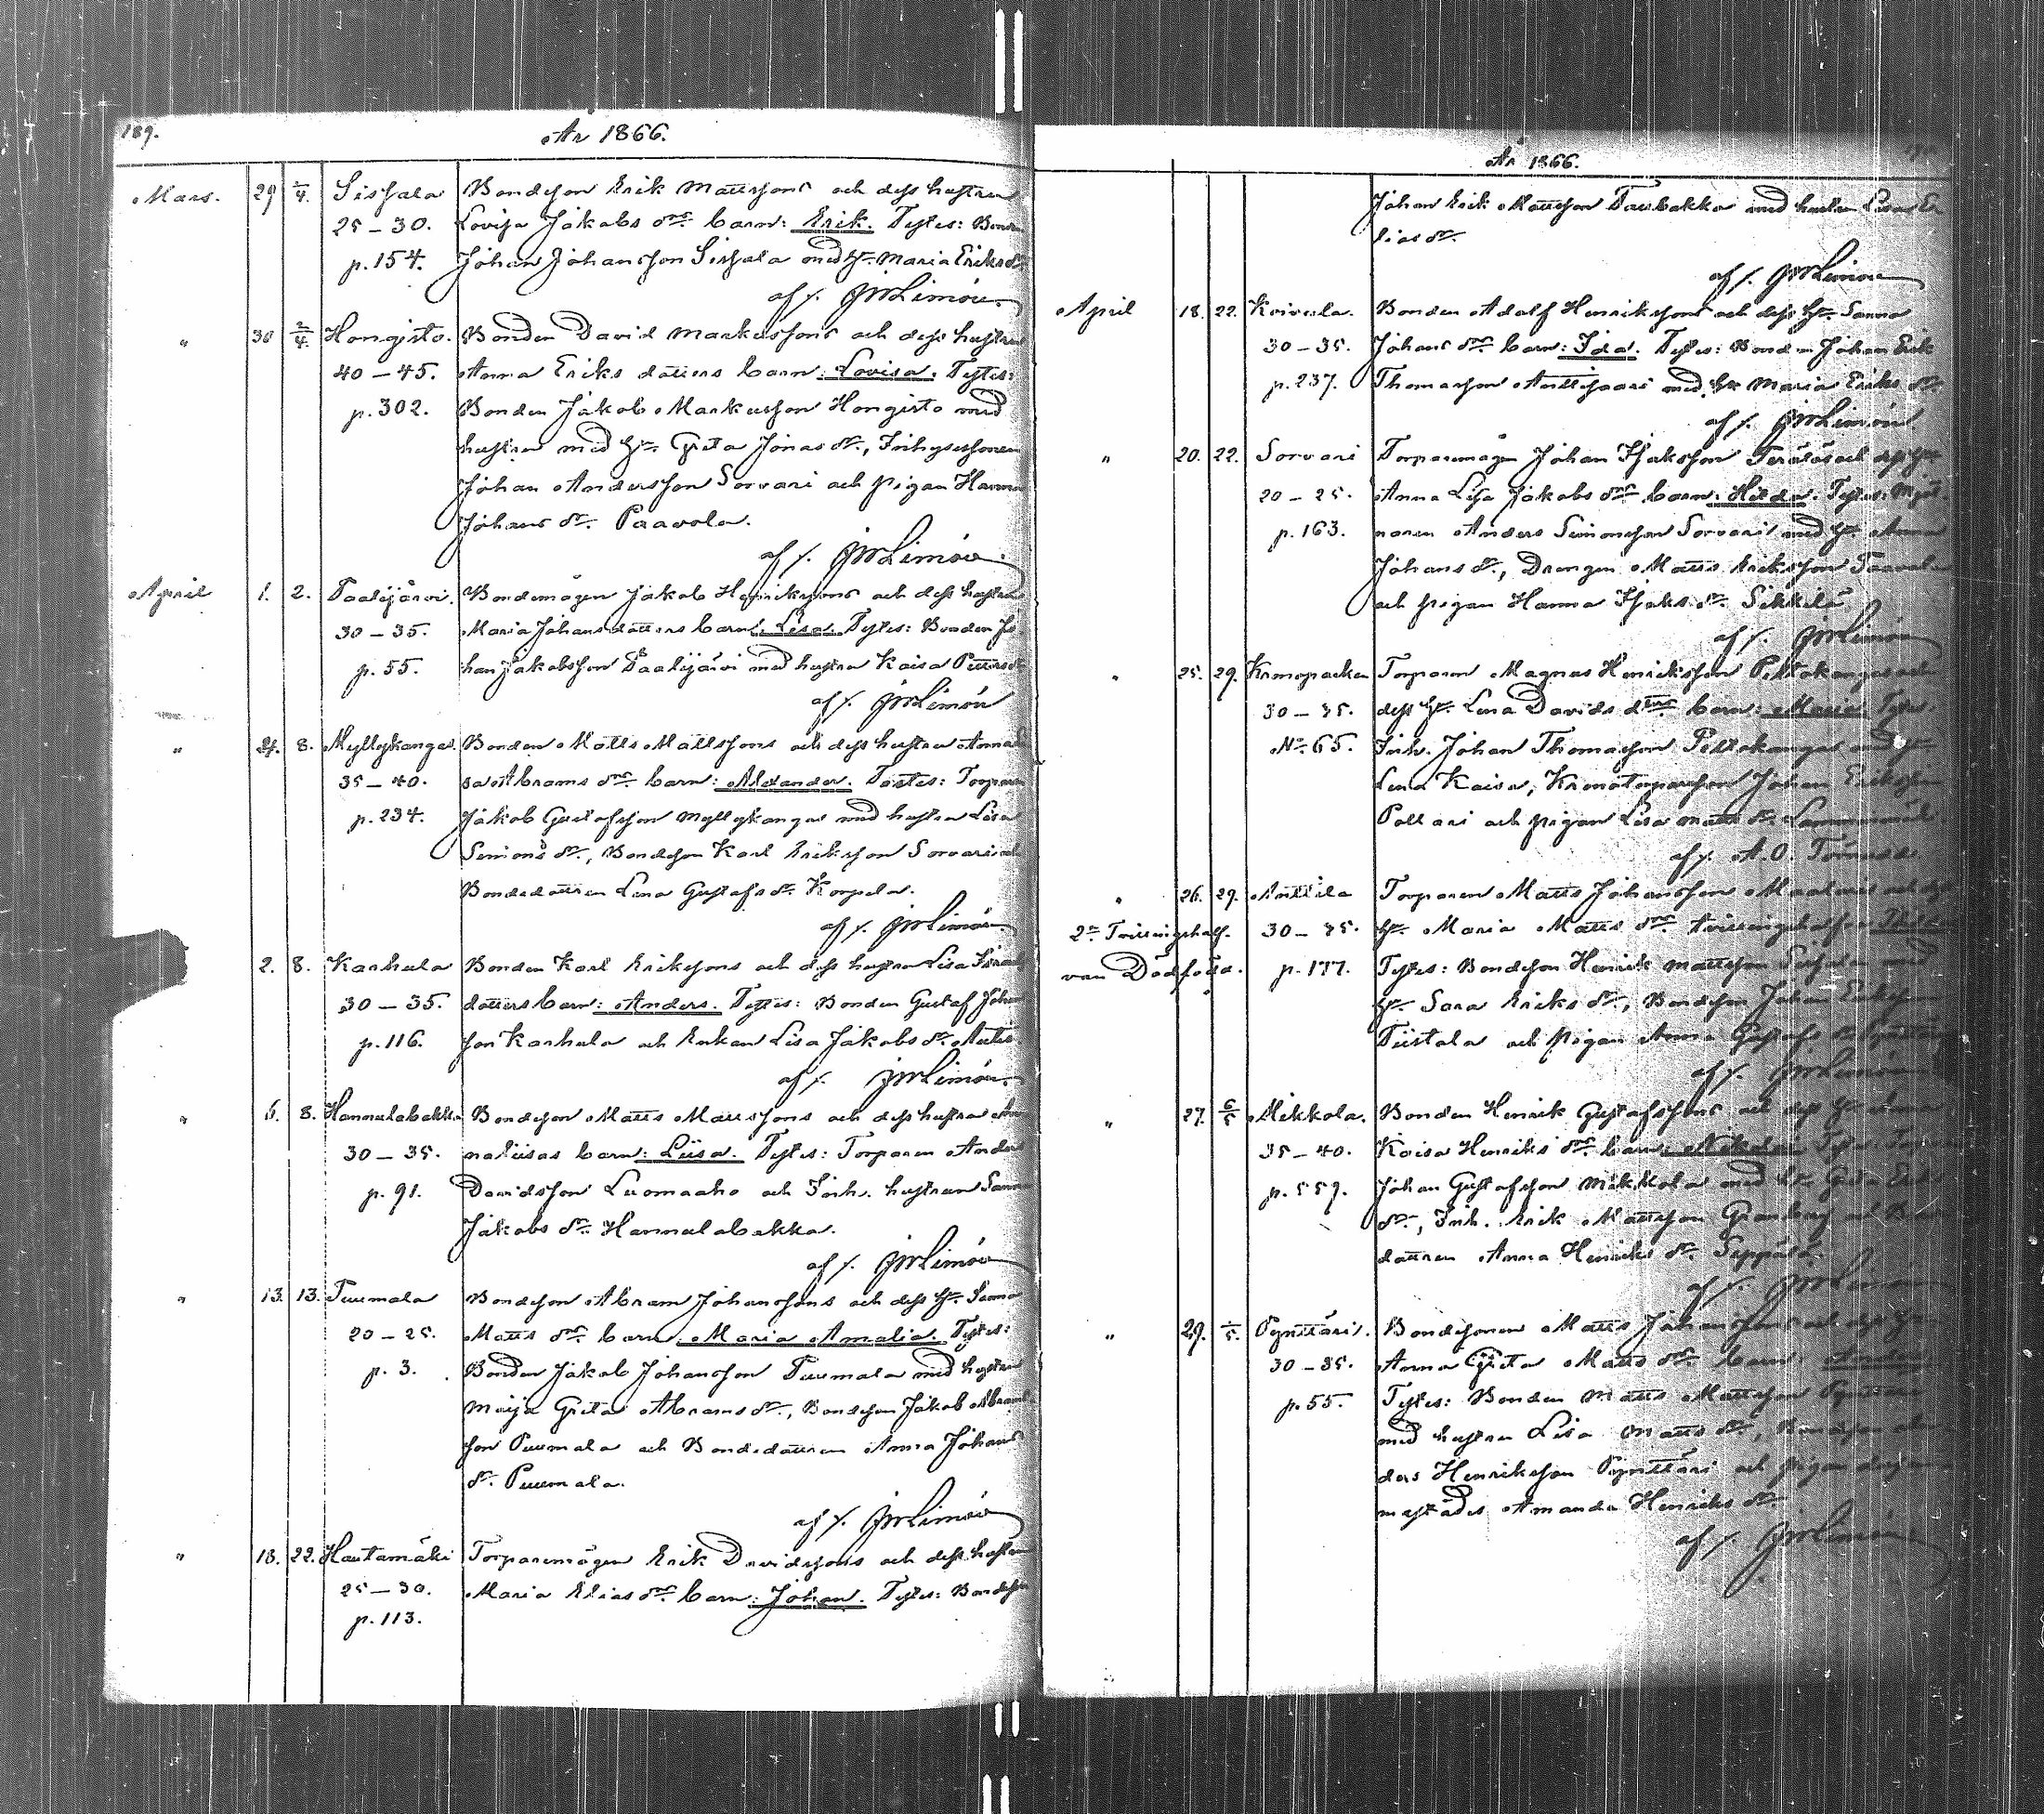 189.
År 1866.
Mars. 29 2/4. Sissala Bondeson Erik Mattssons och dess hustrus
25–30. Lovisa Jakobs drs barn: Erik. Testes: Bonden
p. 154. Johan Johansson Sissala med h. Maria Eriks dr
af /. JWLimón
" 30 2/4. Hongisto. Bonden David Markussons och dess hustrus
40–45. Anna Eriks dotters barn: Lovisa. Testes:
p. 302. Bonden Jakob Markusson Hongisto med
hustru med h. Greta Jonas dr, Inhysessonen
Johan Andersson Sorvari och pigan Hanna
Johans dr Paavola.
af /. JWLimón
April 1. 2. Paalijärvi. Bondemågen Jakob Henrikssons och dess hustrus
30–35. Maria Johans dotters barn: Lisa. Testes: Bonden Jo-
p. 55. han Jakobsson Paalijärvi med hustru Kaisa Petters dr
af /. JWLimón
" 8. Myllykangas. Bonden Matts Mattssons och dess hustrus
35–40. Abrams drs barn: Alexander. Testes: Torparen
p. 234. Jakob Gustafsson Myllykangas med hustru Lisa
Simons dr, Bondeson Karl Eriksson Sorvari och
Bondedottren Lena Gustafs dr Korpela.
af /. JWLimón
2. 8. Karhula Bonden Karl Erikssons och dess hustru Lisa
30–35. dotters barn: Anders. Testes: Bonden Gustaf Johans-
p. 116. son Karhula och Enkan Lisa Jakobs dr
af /. JWLimón
" 6. 8. Hannulabakka Bondeson Matts Mattssons och dess hustrus An-
30–35. naliisas barn: Liisa. Testes: Torparen Anders
p. 91. Davidsson Luomaaho och Inh. hustrun Sanna
Jakobs dr Hannulabakka.
af /. JWLimón
" 13. 13. Puumala Bondeson Abram Johanssons och dess h. Sanna
20–25. Matts drs barn: Maria Amalia. Testes:
p. 3. Bonden Jakob Johansson Puumala med hustru
Maija Greta Abrams dr, Bondeson Jakob Abrams-
son Puumala och Bondedottren Anna Johans
dr Puumala.
af /. JWLimón
" 18. 22. Hautamäki Torparemågen Erik Davidssons och dess hustrus
25–30. Maria Elias drs barn: Johan. Testes: Bondeson
p. 113.
År 1866.
Johan Erik Mattsson med hustru Lisa E-
lias dr.
af /. JWLimón
April 18. 22. Koivula. Bonden Adolf Henrikssons och dess h. Sanna
30–35. Johans drs barn: Ida. Testes: Bonden Johan Erik
p. 237. Thomasson Anttisaari med h. Maria Eriks dr.
af /. JWLimón
" 20. 22. Sorvari Torparemågen Johan Isaksson Teräs och dess h.
20–25. Anna Lisa Jakobs drs barn: Hilda. Testes: Mjöl-
p. 163. naren Anders Simonsson Sorvari med h. Anna
Johans dr, Drengen Matts Eriksson Paavola
och pigan Hanna Isaks dr Sikkilä
af /. JWLimón
" 25. 29. Kronoparken Torparen Magnus Henriksson Peltokangas och
30–35. dess h. Lena Davids drs barn: Maria. Testes:
No 65. Inh. Johan Thomasson Peltokangas med h.
Lena Kaisa, Kronotorparson Johan Eriksson
Pollari och pigan Lisa Matts dr
af /. A.O. Törnudd.
" 26. 29. Anttila Torparen Matts Johansson och dess
2n Tvillinghalf. 30–35. h. Maria Matts drs tvillinghalfva
var Dödfödd. p. 177. Testes: Bondeson Henrik Mattsson med
h. Sara Eriks dr, Bondeson Johan Eriksson
Tiistola och pigan Anna Gustafs dr
af /. JWLimón
" 27. 6/5 Mikkola. Bonden Henrik Gustafssons och dess h. Anna
35–40. Kaisa Henriks drs barn:
p. 559. Johan Gustafsson Mikkola med h. Greta
dr, Inh. Erik Mattsson Granberg och Bonde-
dottren Anna Henriks dr Seppälä.
af /. JWLimón
" 29. /5. Pynttäri. Bondesonen Matts Johanssons och dess h.
30–35. Anna Greta Matts drs barn:
p. 55. Testes: Bonden Matts Mattsson Pynttäri
med hustru Lisa Matts dr, Bondeson An-
ders Henriksson Pynttäri och pigan
Amanda Henriks dr
af /. JWLimón